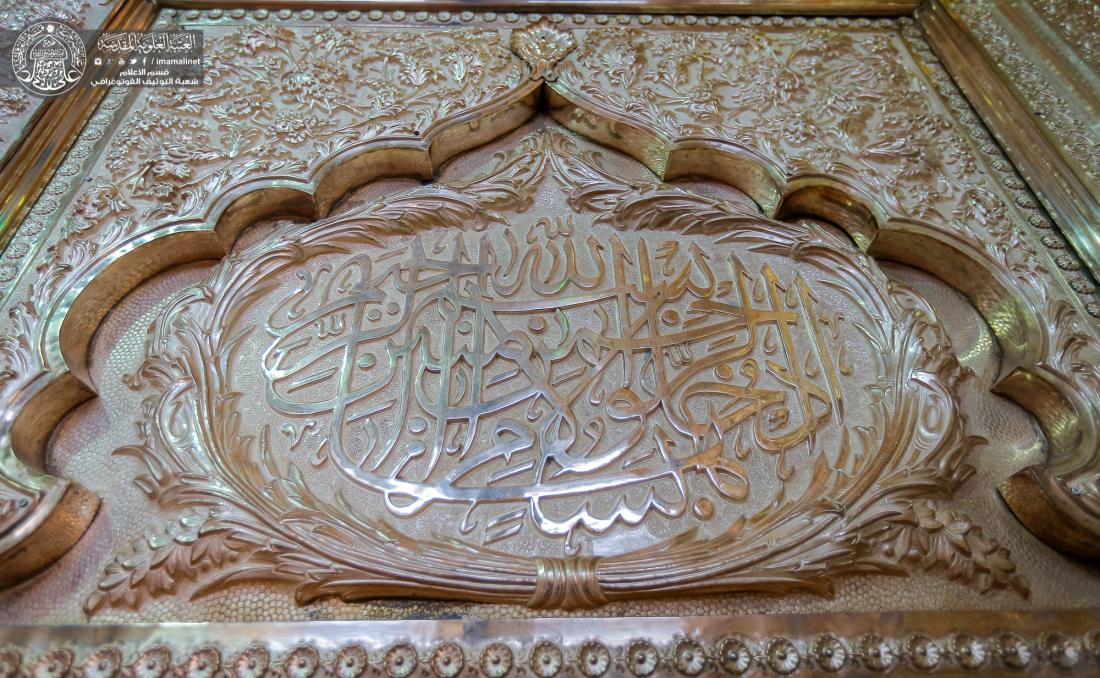 العتبة العلوية المقدسة
/ imamalinet
قسم الاعلام
شعبة التوثيق الفوتوغرافي
بسم الله الرحمن الرحيم
ادخلوها بسلام آمنين